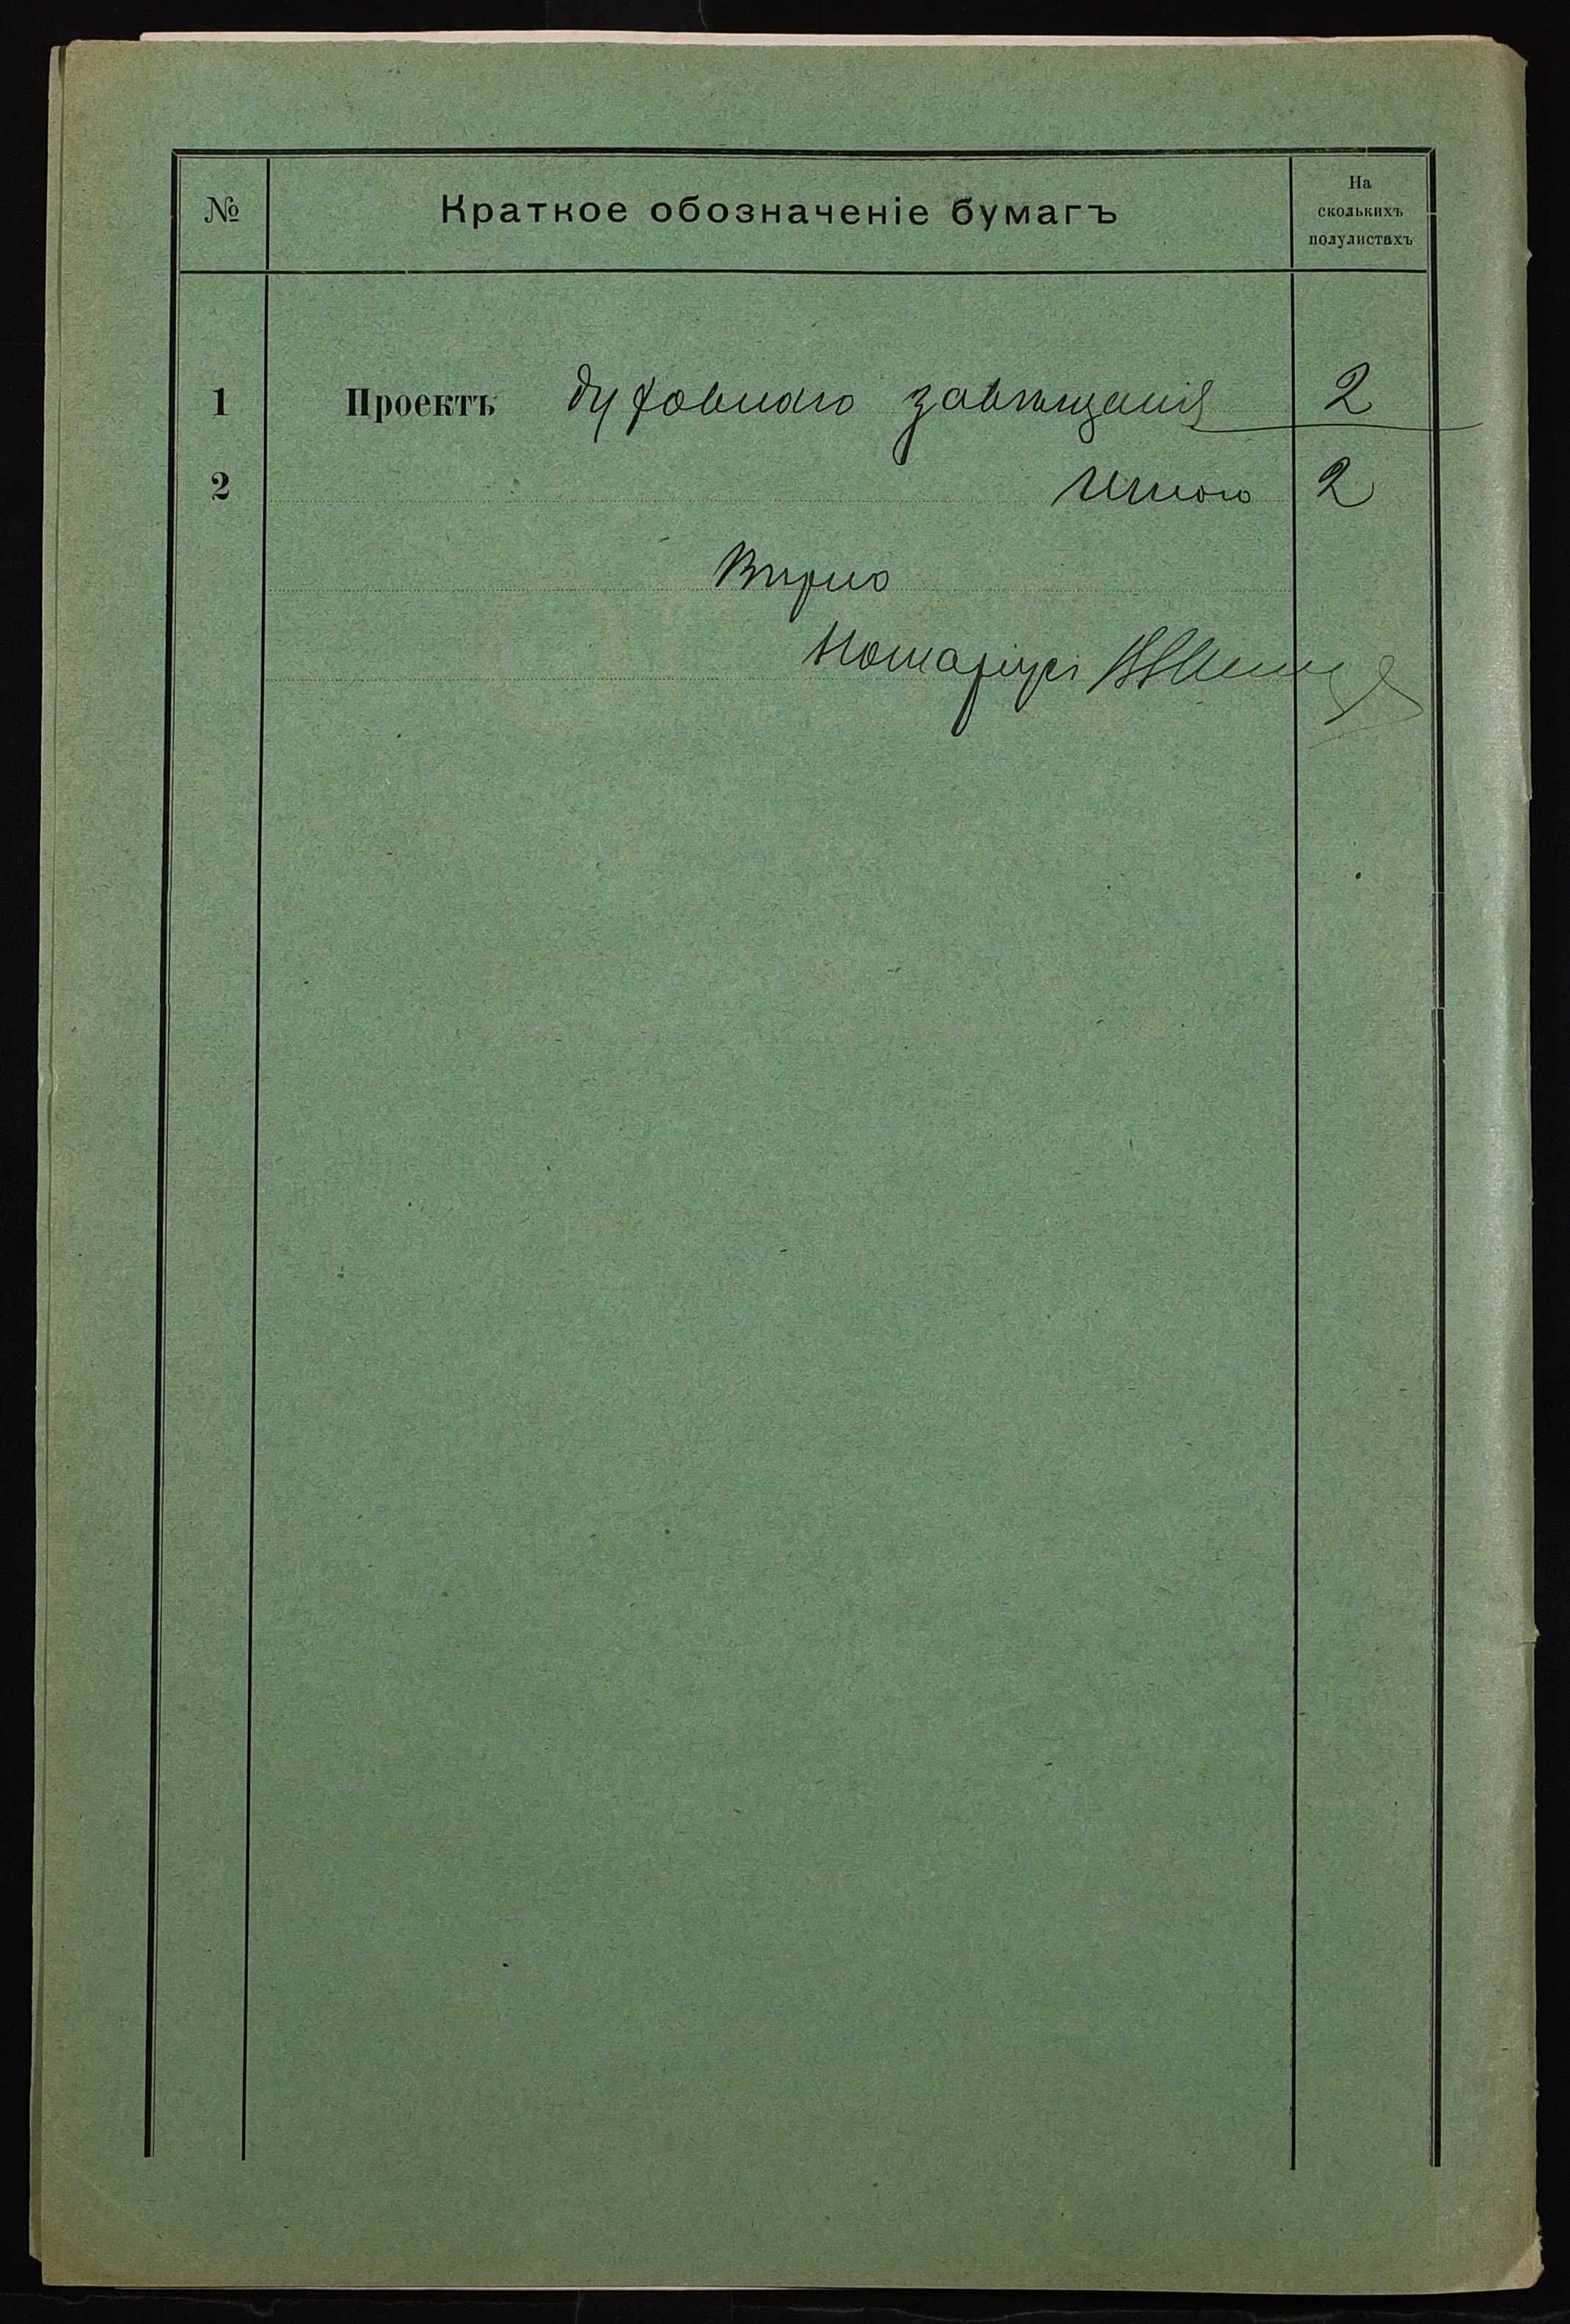 № Краткое обозначеніе бумагъ На
сколькихъ
полулистахъ
1 Проектъ духовнаго завѣщанія 2
2 Итого 2
Вѣрно
Нотаріусъ